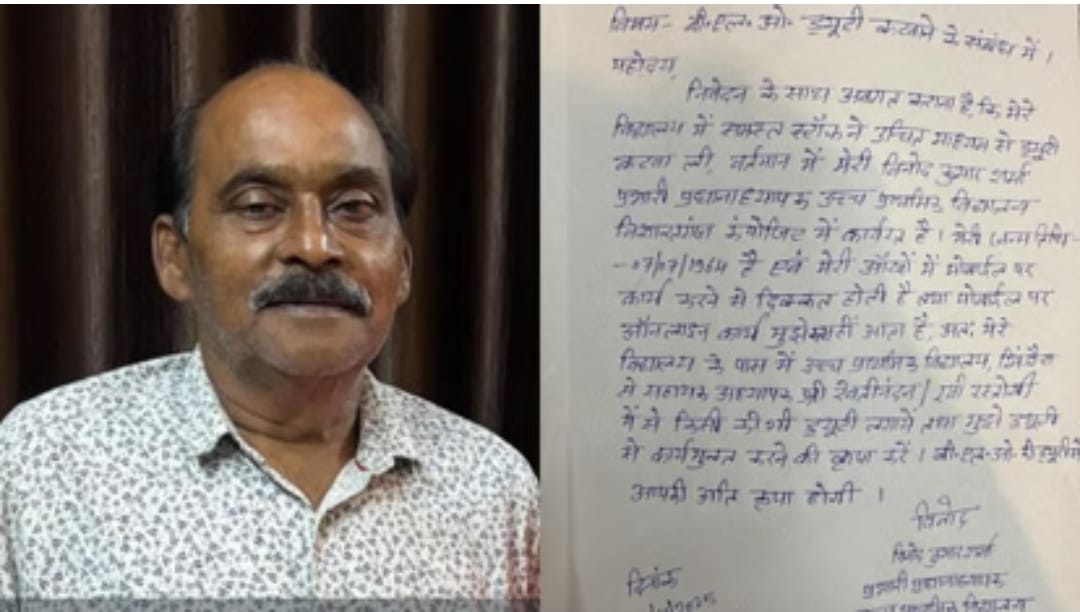 विषय- बी.एल.ओ. ड्यूटी कटवाने के संबंध में ।
महोदय,
निवेदन के साथ अवगत कराना है, कि मेरे
विद्यालय में समस्त स्टॉफ ने उचित माध्यम से ड्यूटी
कटवा ली, वर्तमान में मेरी विनोद कुमार शर्मा
प्रभारी प्रधानाध्यापक उच्च प्राथमिक विद्यालय
कंपोजिट में कार्यरत है । मेरी जन्म तिथि-
-07/07/1964 है एवं मेरी आँखों में मोबाईल पर
कार्य करने में दिक्कत होती है तथा मोबाईल पर
ऑनलाइन कार्य मुझे नहीं आता है, अतः मेरे
विद्यालय के पास में उच्च प्राथमिक विद्यालय,
से सहायक अध्यापक श्री / रवी रस्तोगी
में से किसी की भी ड्यूटी लगायें तथा मुझे ड्यूटी
से कार्यमुक्त करने की कृपा करें । बी.एल.ओ. की ड्यूटी से
आपकी अति कृपा होगी ।
विनोद
विनोद कुमार शर्मा
दिनांक
प्रभारी प्रधानाध्यापक
2025
विद्यालय